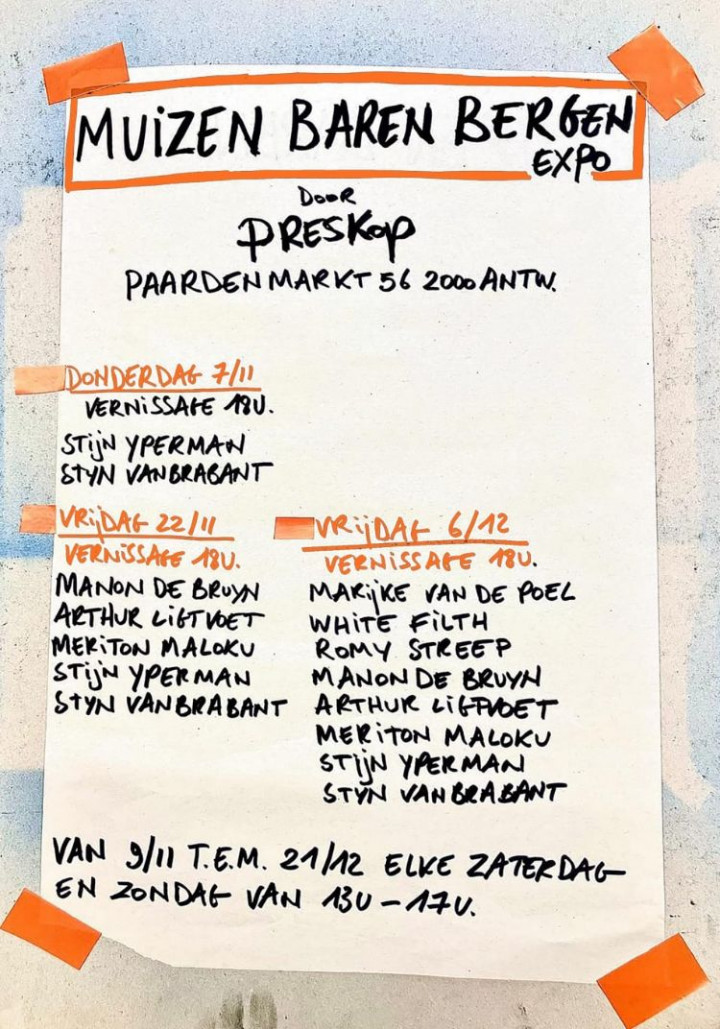 MUIZEN BAREN BERGEN
EXPO
DOOR
PRESKOP
PAARDENMARKT 56 2000 ANTW.
DONDERDAG 7/11
VERNISSAGE 18U.
STIJN YPERMAN
STYN VANBRABANT
VRIJDAG 22/11
VERNISSAGE 18U.
MANON DE BRUYN
ARTHUR LIGTVOET
MERITON MALOKU
STIJN YPERMAN
STYN VANBRABANT
VRIJDAG 6/12
VERNISSAGE 18U.
MARIJKE VAN DE POEL
WHITE FILTH
ROMY STREEP
MANON DE BRUYN
ARTHUR LIGTVOET
MERITON MALOKU
STIJN YPERMAN
STYN VANBRABANT
VAN 9/11 T.E.M. 21/12 ELKE ZATERDAG
EN ZONDAG VAN 13U - 17U.